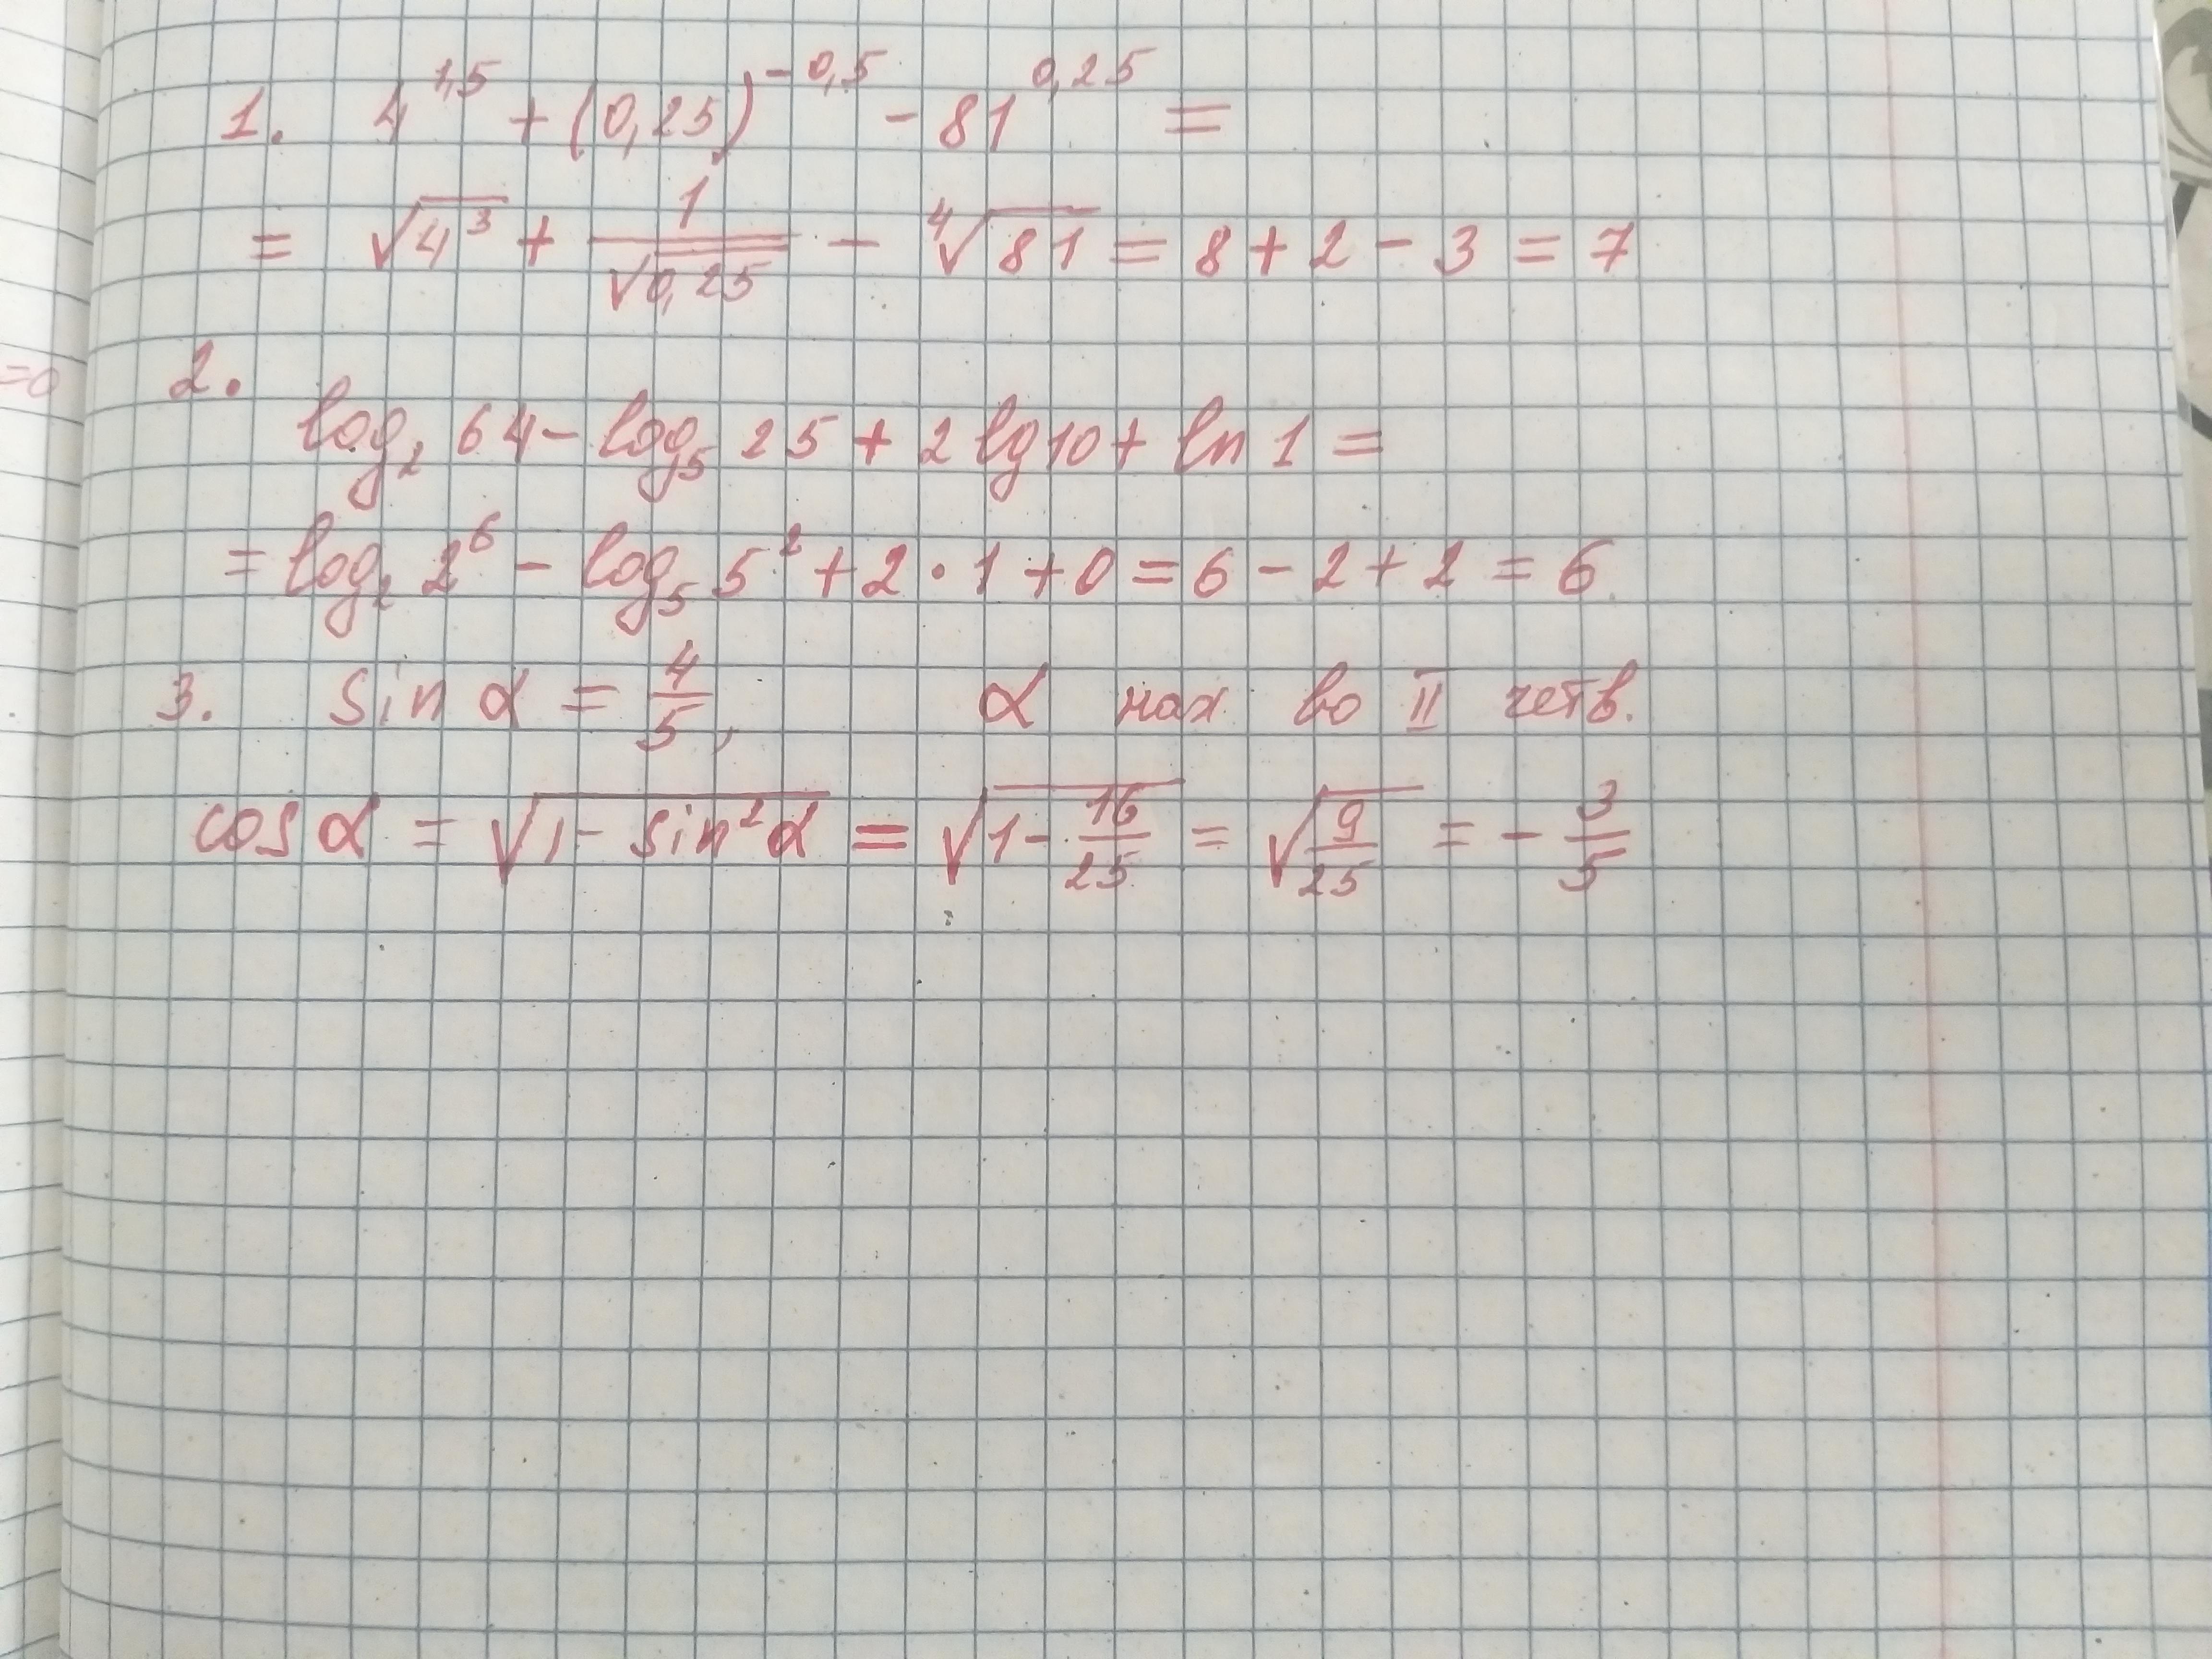 1. 4^1,5 + (0,25)^-0,5 - 81^0,25 =
= √4³ + 1/√0,25 - ⁴√81 = 8 + 2 - 3 = 7
=0
2.
log₂ 64 - log₅ 25 + 2 lg 10 + ln 1 =
= log₂ 2⁶ - log₅ 5² + 2 · 1 + 0 = 6 - 2 + 2 = 6.
3. sin α = 4/5, α нах. во II четв.
cos α = √(1 - sin²α) = √(1 - 16/25) = √(9/25) = - 3/5